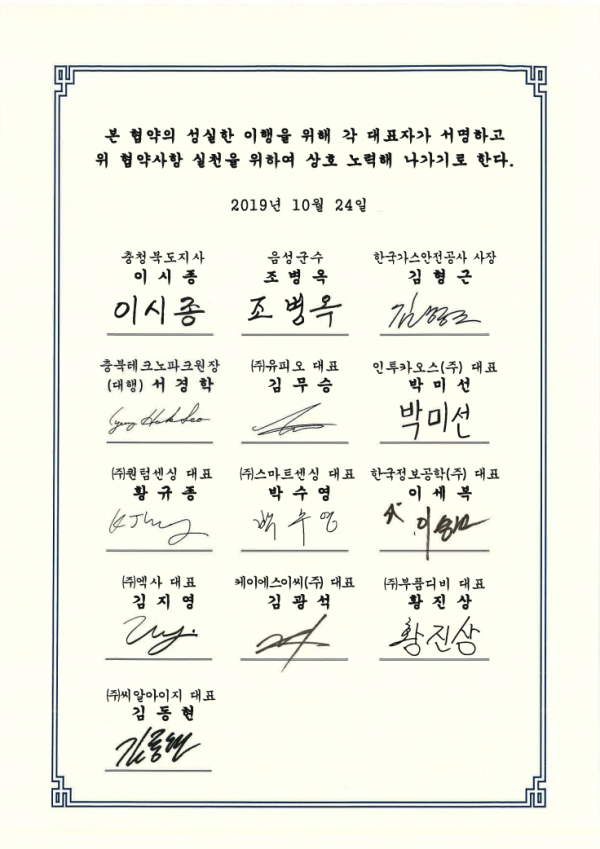 본 협약의 성실한 이행을 위해 각 대표자가 서명하고
위 협약사항 실천을 위하여 상호 노력해 나가기로 한다.
2019년 10월 24일
충청북도지사
이시종
이시종
음성군수
조병옥
조병옥
한국가스안전공사 사장
김형근
충북테크노파크원장
(대행) 서경학
Kyung Hak Seo
㈜유피오 대표
김무승
인투카오스(주) 대표
박미선
박미선
㈜퀀텀센싱 대표
황규종
㈜스마트센싱 대표
박수영
박수영
한국정보공학(주) 대표
이세복
㈜엑사 대표
김지영
케이에스이씨(주) 대표
김광석
㈜부품디비 대표
황진상
황진상
㈜씨알아이지 대표
김동현
김동현